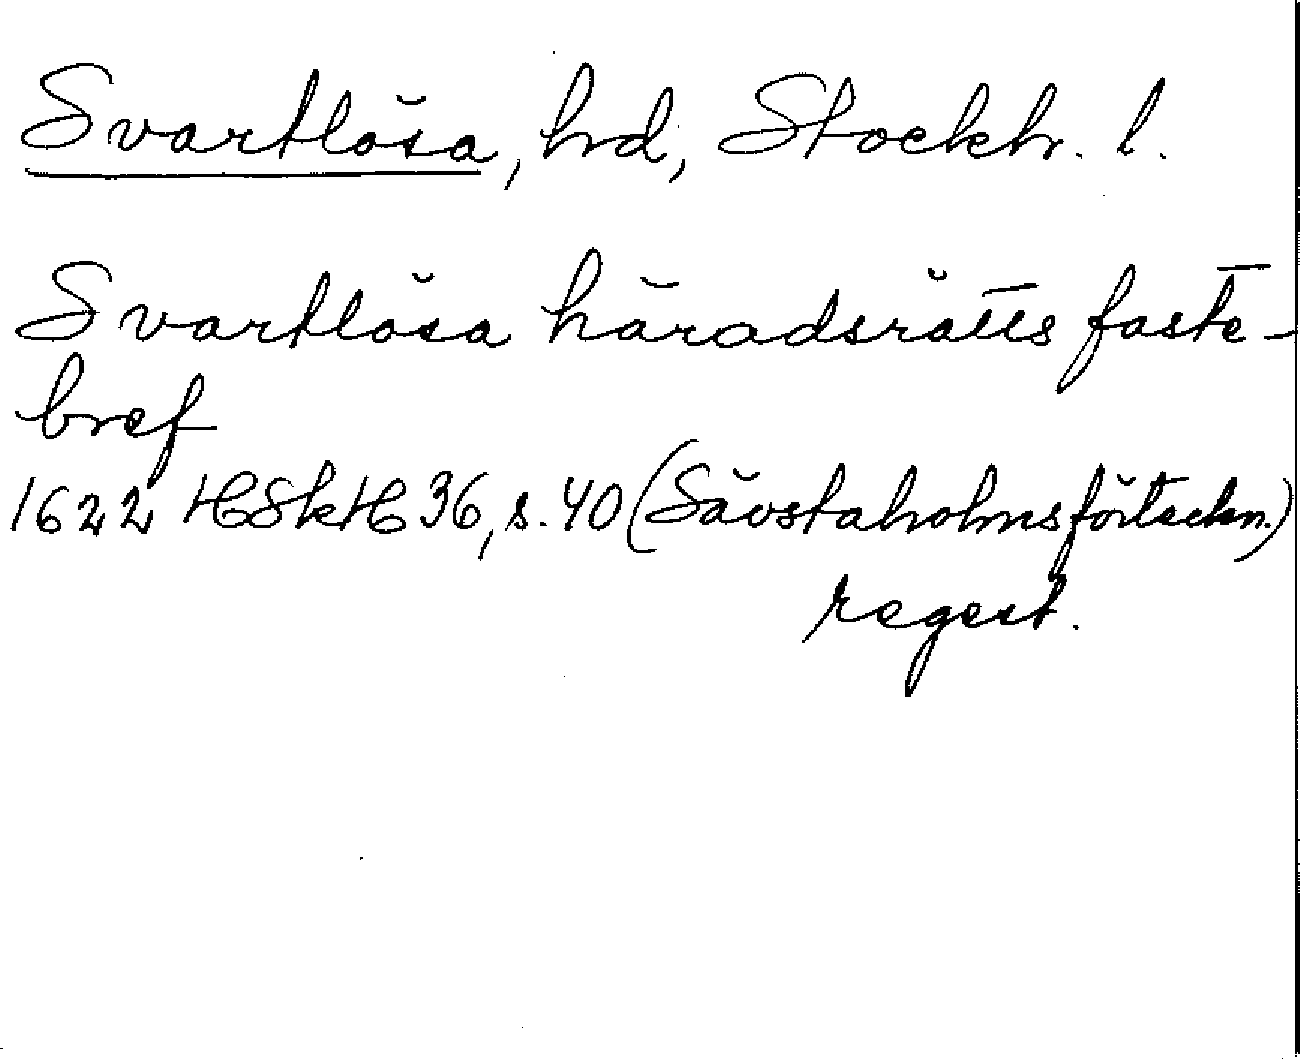 Svartlösa, hd, Stockh. l.
Svartlösa häradsrätts faste-
bref
1622 HSkH 36, s. 40 (Sävstaholmsförteckn.)
regest.